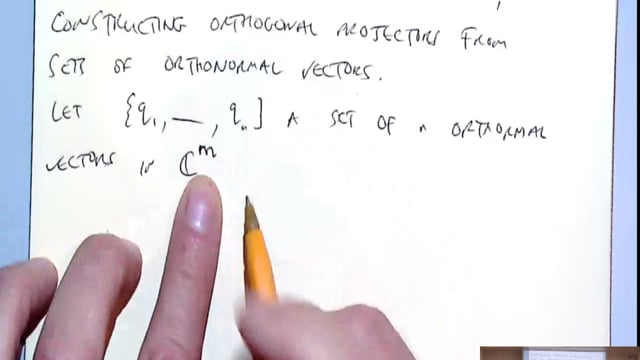 CONSTRUCTING ORTHOGONAL PROJECTORS FROM
SETS OF ORTHONORMAL VECTORS.
LET {q₁, — , qₙ} A SET OF n ORTHORMAL
VECTORS IN ℂᵐ